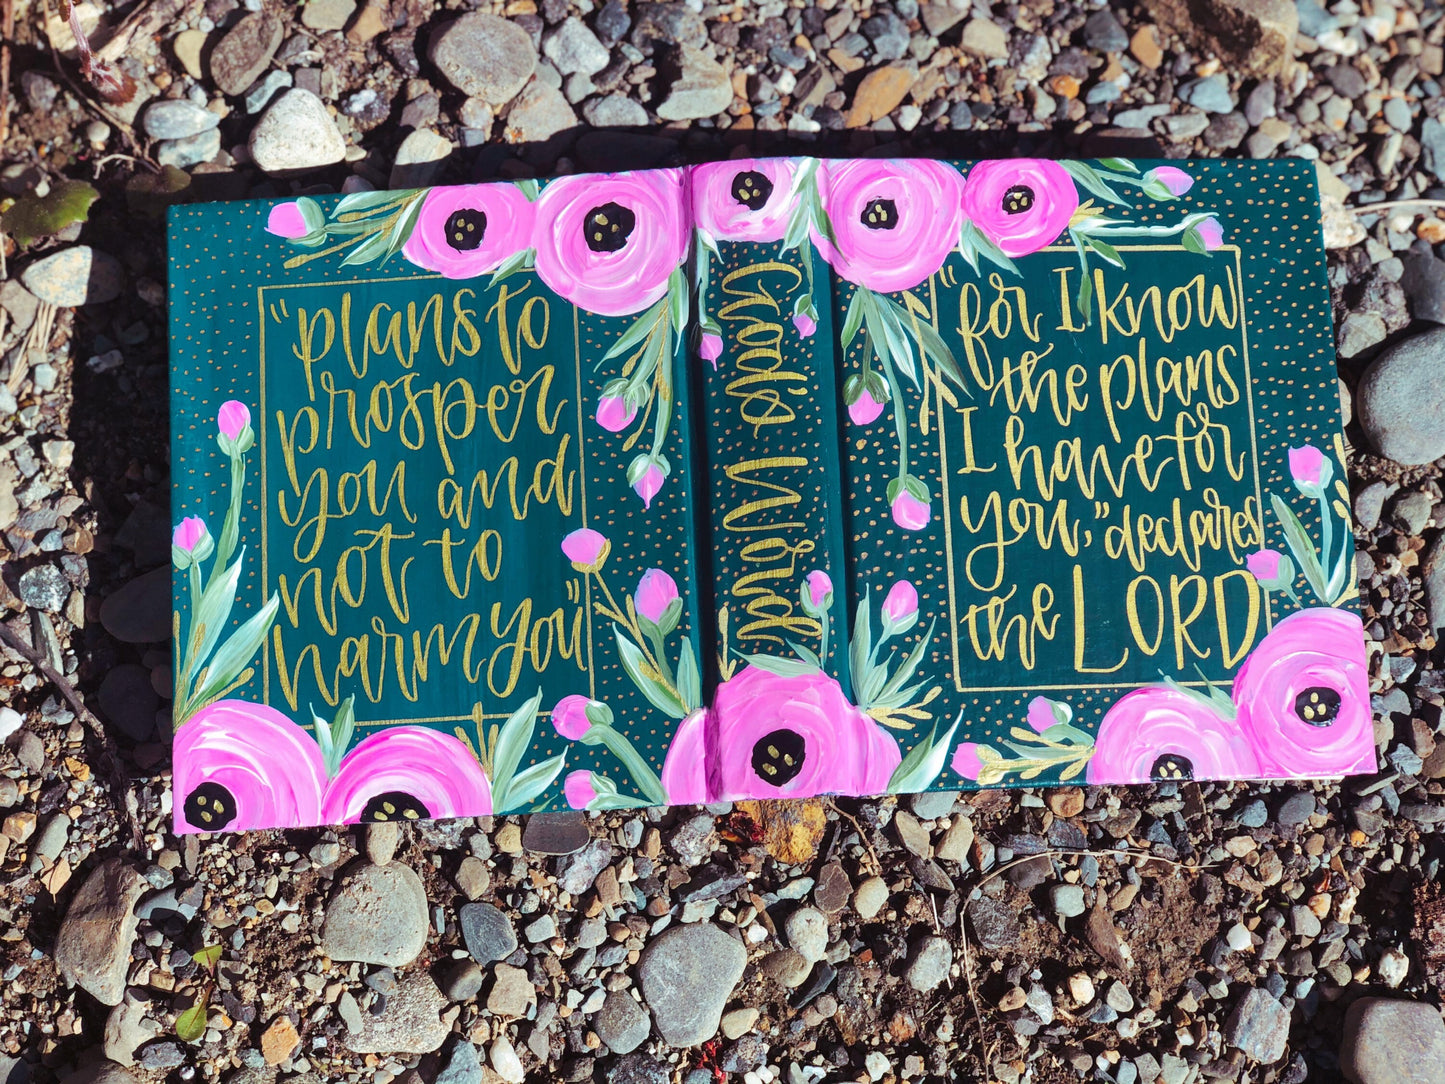 "plans to
prosper
you and
not to
harm you"
God's Word
"for I know
the plans
I have for
you," declares
the LORD